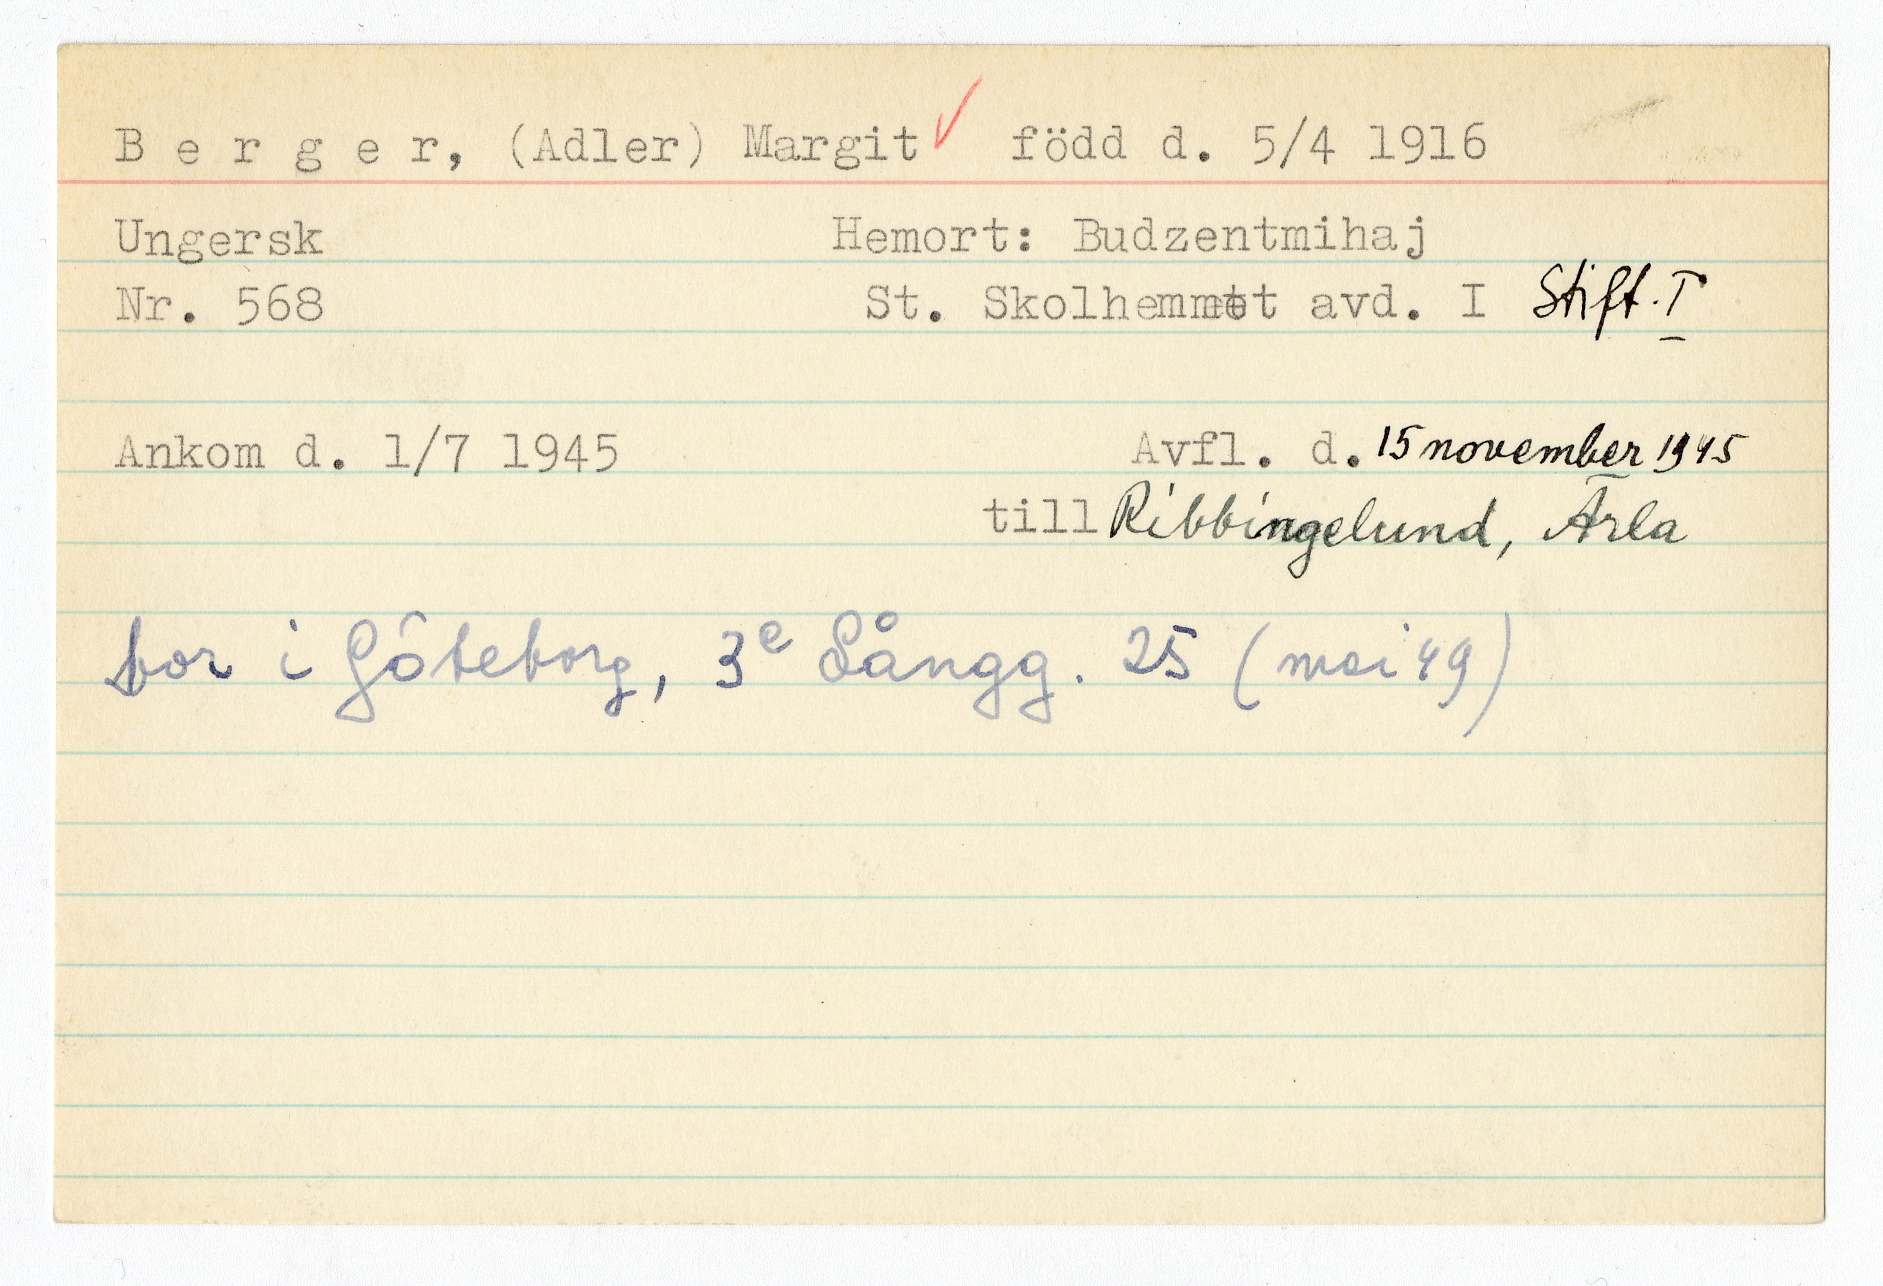 B e r g e r, (Adler) Margit ✓ född d. 5/4 1916
Ungersk Hemort: Budzentmihaj
Nr. 568 St. Skolhemmet avd. I Stift. I
Ankom d. 1/7 1945 Avfl. d. 15 november 1945
till Ribbingelund, Ärla
bor i Göteborg, 3e Långg. 25 (mai 49)